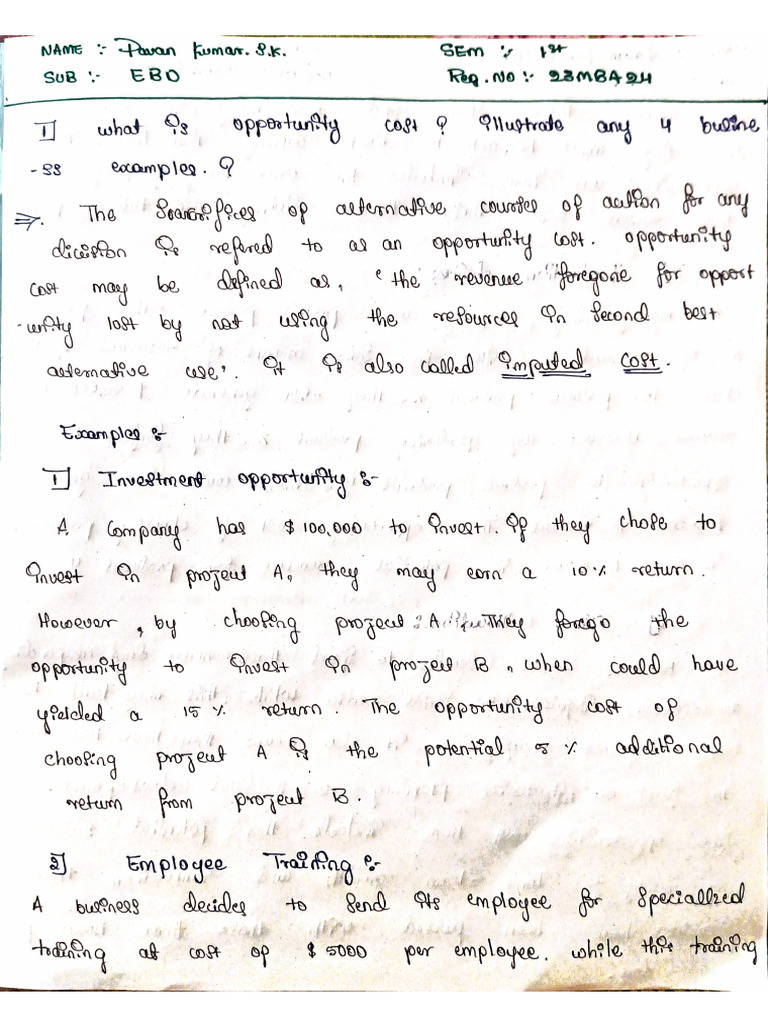 NAME :- Pavan Kumar. S.K. SEM :- 1st
SUB :- EBD Reg. NO :- 23MBA24
1] what is opportunity cost ? illustrate any 4 busine
-ss examples. ?
⇒. The of alternative courses of action for any
dicision is refered to as an opportunity cost. opportunity
cost may be defined as, "the revenue foregone for opport
-unity lost by not using the resources in second best
alternative use". it is also called imputed cost.
Examples :-
1] Investment opportunity :-
A Company has $ 100,000 to invest. if they chose to
invest in project A, they may earn a 10% return.
However, by choosing project A they forego the
opportunity to invest in project B, when could have
yielded a 15% return. The opportunity cost of
choosing project A is the potential 5% additional
return from project B.
2] Employee Training :-
A business decides to send its employee for specialized
training at cost of $ 5000 per employee. while this training